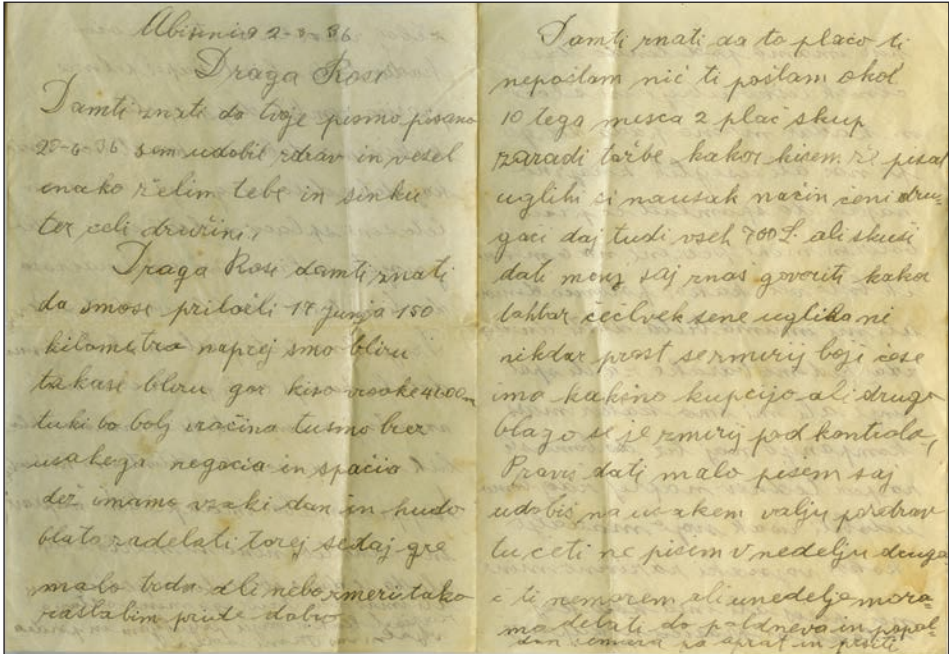 Abisinia 2-8-36
Draga Rosi
Damti znati da tvoje pismo pisano
20-6-36 sem udobil zdrav in vesel
enako želim tebe in sinku
ter celi družini,
Draga Rosi damti znati
da smose priločli 17 junja 150
kilometra naprej smo blizu
takase blizu gor kiso vsoke 4600m
tuki bo bolj vračina tusmo brez
usakega negocia in spačio
dež imamo vzaki dan in hudo
blato zadelati torej sedaj gre
malo trda ali nebo zmeri tako
zaslabim pride dobro
Damti znati da to plačo ti
nepošlam nič ti pošlam okol
10 tega misca 2 plač skup
zaradi tožbe kakor kisem že pisal
uglihi si nausak način čeni dru-
gači daj tudi vseh 700 L. ali skusi
dati menj saj znaš govoriti kakor
tahbar čečlvek sene uglika ni
nikdar prost sezmirij boji čese
ima kakšno kupčijo ali drugo
blago se je zmirij pod kontrola,
Pravij dati malo pisem saj
udobiš na usakem valju pozdrav
tu četi ne pišem v nedelju druga
č ti nemorem ali unedelje mora-
mo delati do poldneva in popol-
dan pa oprat in